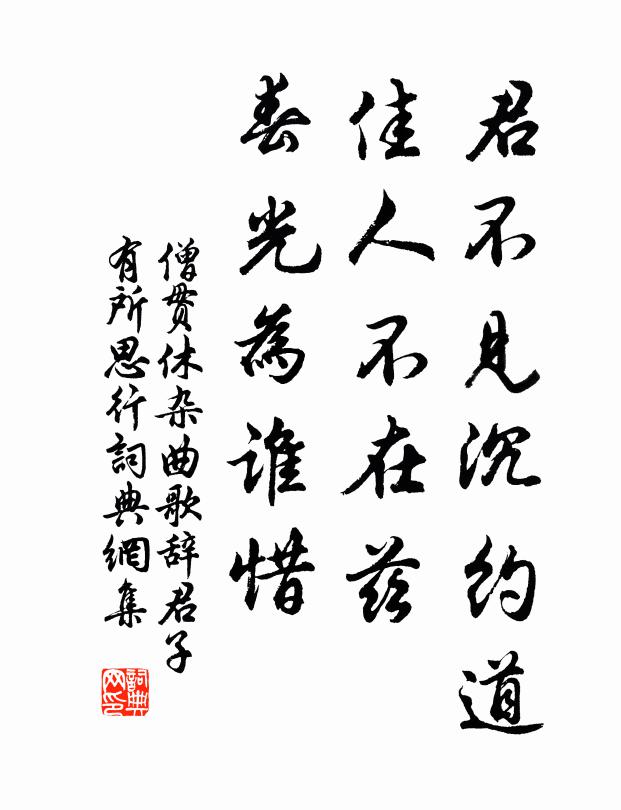 君不見沉約道
佳人不在茲
春光為誰惜
僧貫休杂曲歌辞君子
有所思行詞典網集
詞典
网印